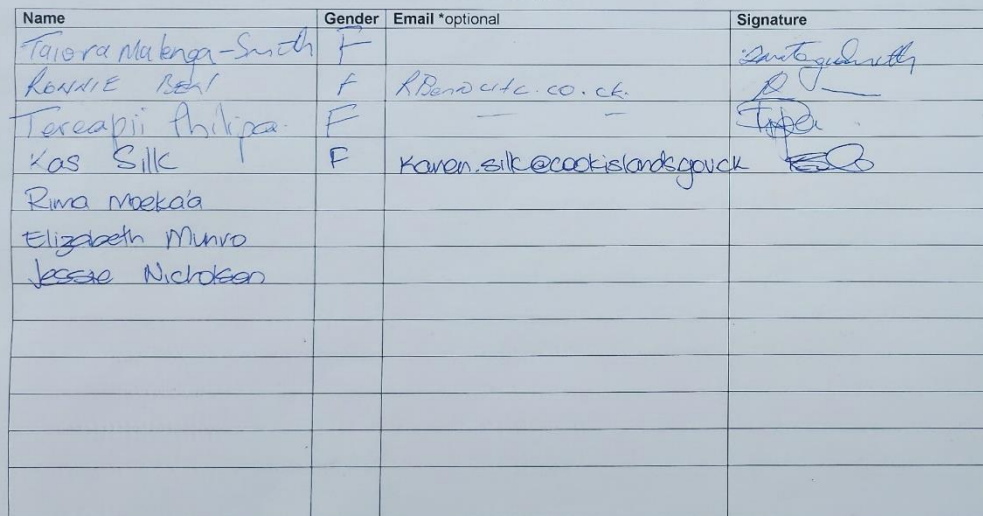 Name Gender Email *optional Signature
Taiora Matenga-Smith F
RONNIE F
Tereapii F — —
Kas Silk F Karen.silk@cookislands.gov.ck
Rima Moeka'a
Elizabeth Munro
Jessie Nicholson